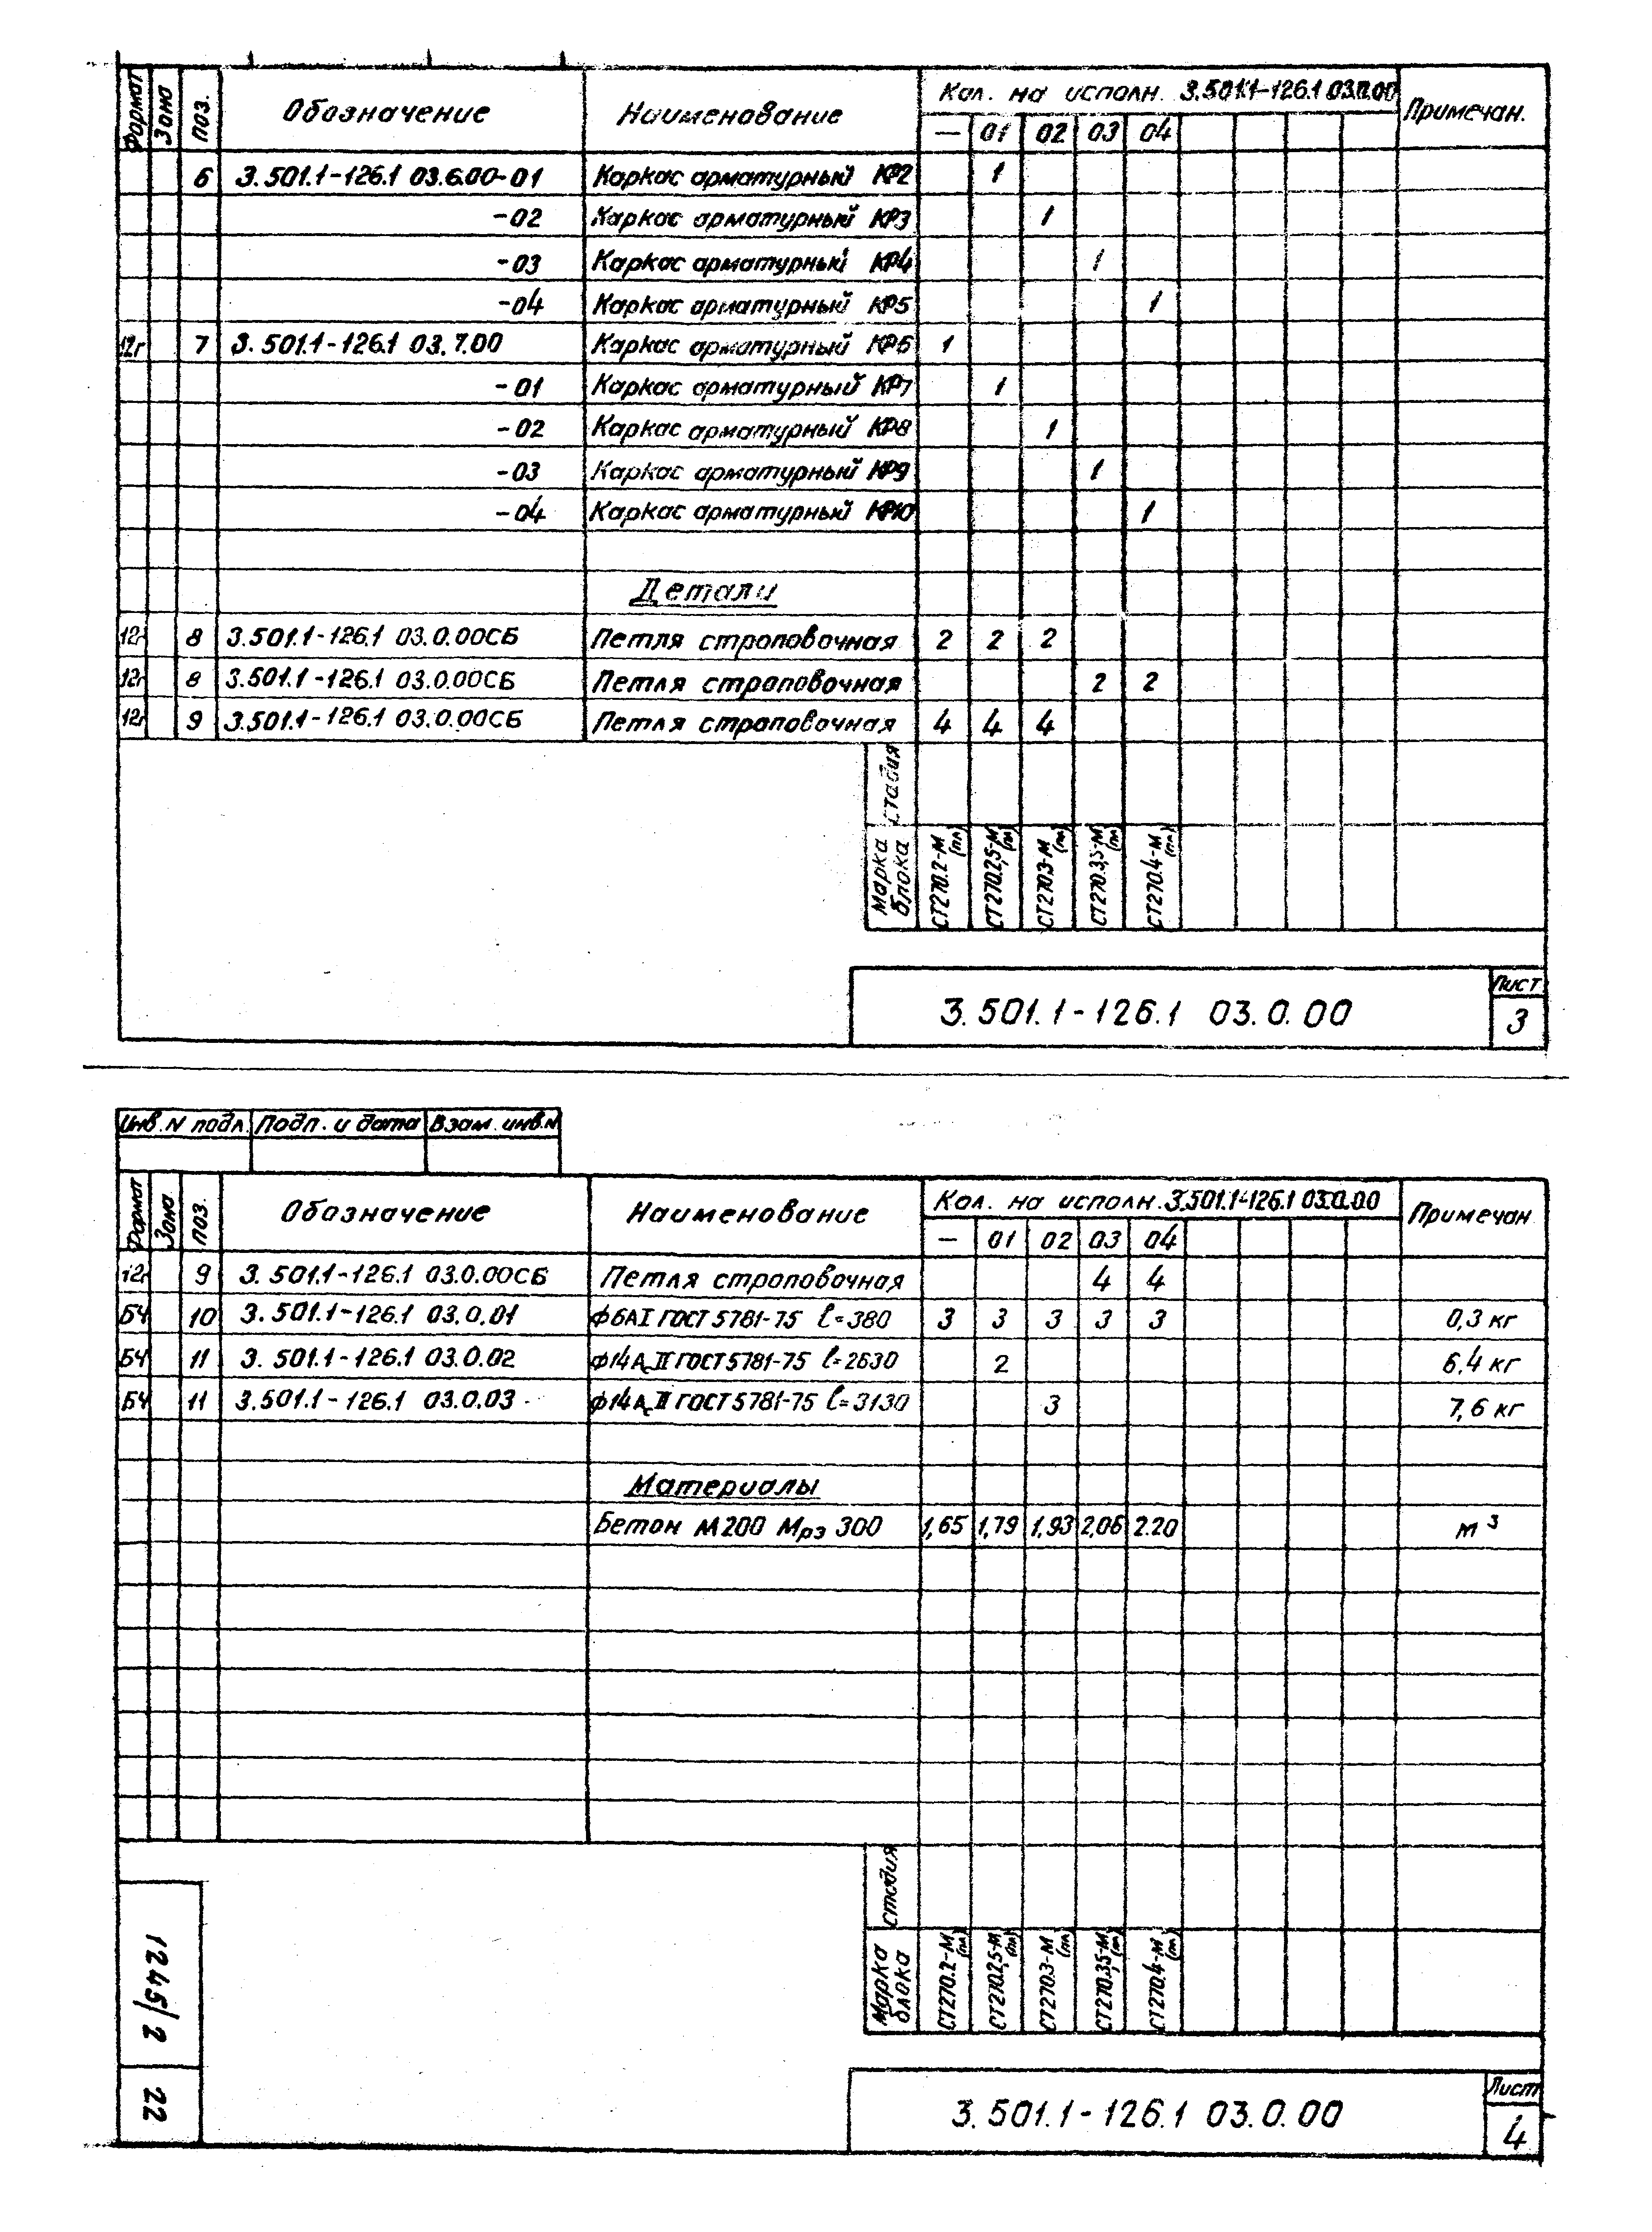 Формат Зона поз. Обозначение Наименование Кол. на исполн. 3.501.1-126.1 03.0.00 Примечан.
— 01 02 03 04
6 3.501.1-126.1 03.6.00-01 Каркас арматурный КР2 1
-02 Каркас арматурный КР3 1
-03 Каркас арматурный КР4 1
-04 Каркас арматурный КР5 1
12г 7 3.501.1-126.1 03.7.00 Каркас арматурный КР6 1
-01 Каркас арматурный КР7 1
-02 Каркас арматурный КР8 1
-03 Каркас арматурный КР9 1
-04 Каркас арматурный КР10 1
Детали
12г 8 3.501.1-126.1 03.0.00СБ Петля строповочная 2 2 2
12г 8 3.501.1-126.1 03.0.00СБ Петля строповочная 2 2
12г 9 3.501.1-126.1 03.0.00СБ Петля строповочная 4 4 4
Стадия
Марка блока СТ270.2-М (пл) СТ270.2,5-М (пл) СТ270.3-М (пл) СТ270.3,5-М (пл) СТ270.4-М (пл)
3.501.1-126.1 03.0.00 Лист
3
Инв. N подл. Подп. и дата Взам. инв. N
Формат Зона поз. Обозначение Наименование Кол. на исполн. 3.501.1-126.1 03.0.00 Примечан
— 01 02 03 04
12г 9 3.501.1-126.1 03.0.00СБ Петля строповочная 4 4
БЧ 10 3.501.1-126.1 03.0.01 ϕ6АI ГОСТ 5781-75 ℓ=380 3 3 3 3 3 0,3 кг
БЧ 11 3.501.1-126.1 03.0.02 ϕ14АcII ГОСТ 5781-75 ℓ=2630 2 6,4 кг
БЧ 11 3.501.1-126.1 03.0.03 ϕ14АcII ГОСТ 5781-75 ℓ=3130 3 7,6 кг
Материалы
Бетон М200 Мрз 300 1,65 1,79 1,93 2,06 2.20 м³
Стадия
Марка блока СТ270.2-М (пл) СТ270.2,5-М (пл) СТ270.3-М (пл) СТ270.3,5-М (пл) СТ270.4-М (пл)
1245/2
22
3.501.1-126.1 03.0.00 Лист
4